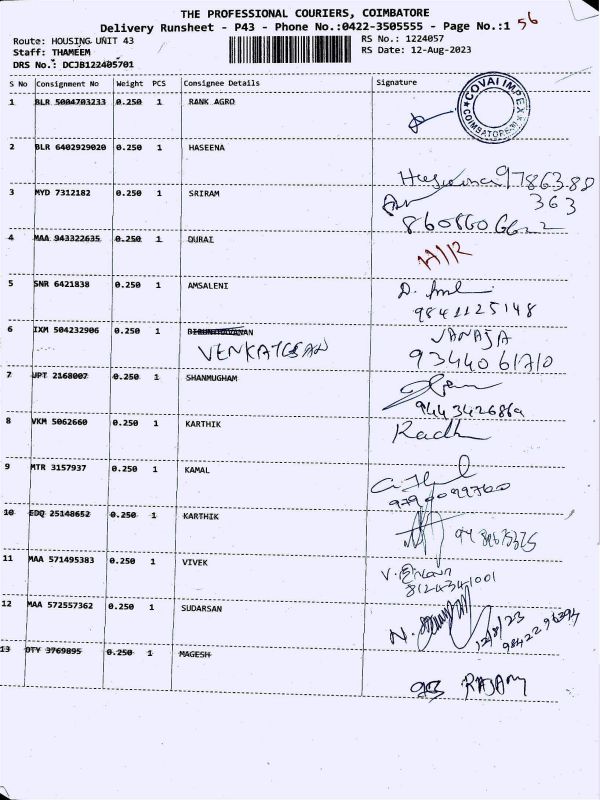 THE PROFESSIONAL COURIERS, COIMBATORE
Delivery Runsheet - P43 - Phone No.:0422-3505555 - Page No.:1 56
Route: HOUSING UNIT 43 RS No.: 1224057
Staff: THAMEEM RS Date: 12-Aug-2023
DRS No.: DCJB122405701
S No Consignment No Weight PCS Consignee Details Signature
1 BLR 5004703233 0.250 1 RANK AGRO
COVAI IMPEX COIMBATORE
2 BLR 6402929020 0.250 1 HASEENA
97863 88
363
3 MYD 7312182 0.250 1 SRIRAM
4 MAA 943322635 0.250 1 DURAI
5 SNR 6421838 0.250 1 AMSALENI
9841125148
6 IXM 504232906 0.250 1
VENKATESAN
VANAJA
93440 61710
7 JPT 2168007 0.250 1 SHANMUGHAM
8 VKM 5062660 0.250 1 KARTHIK
9 MTR 3157937 0.250 1 KAMAL
10 EDQ 25148652 0.250 1 KARTHIK
11 MAA 571495383 0.250 1 VIVEK
8124341001
12 MAA 572557362 0.250 1 SUDARSAN
12/8/23
13 OTY 3769895 0.250 1 MAGESH